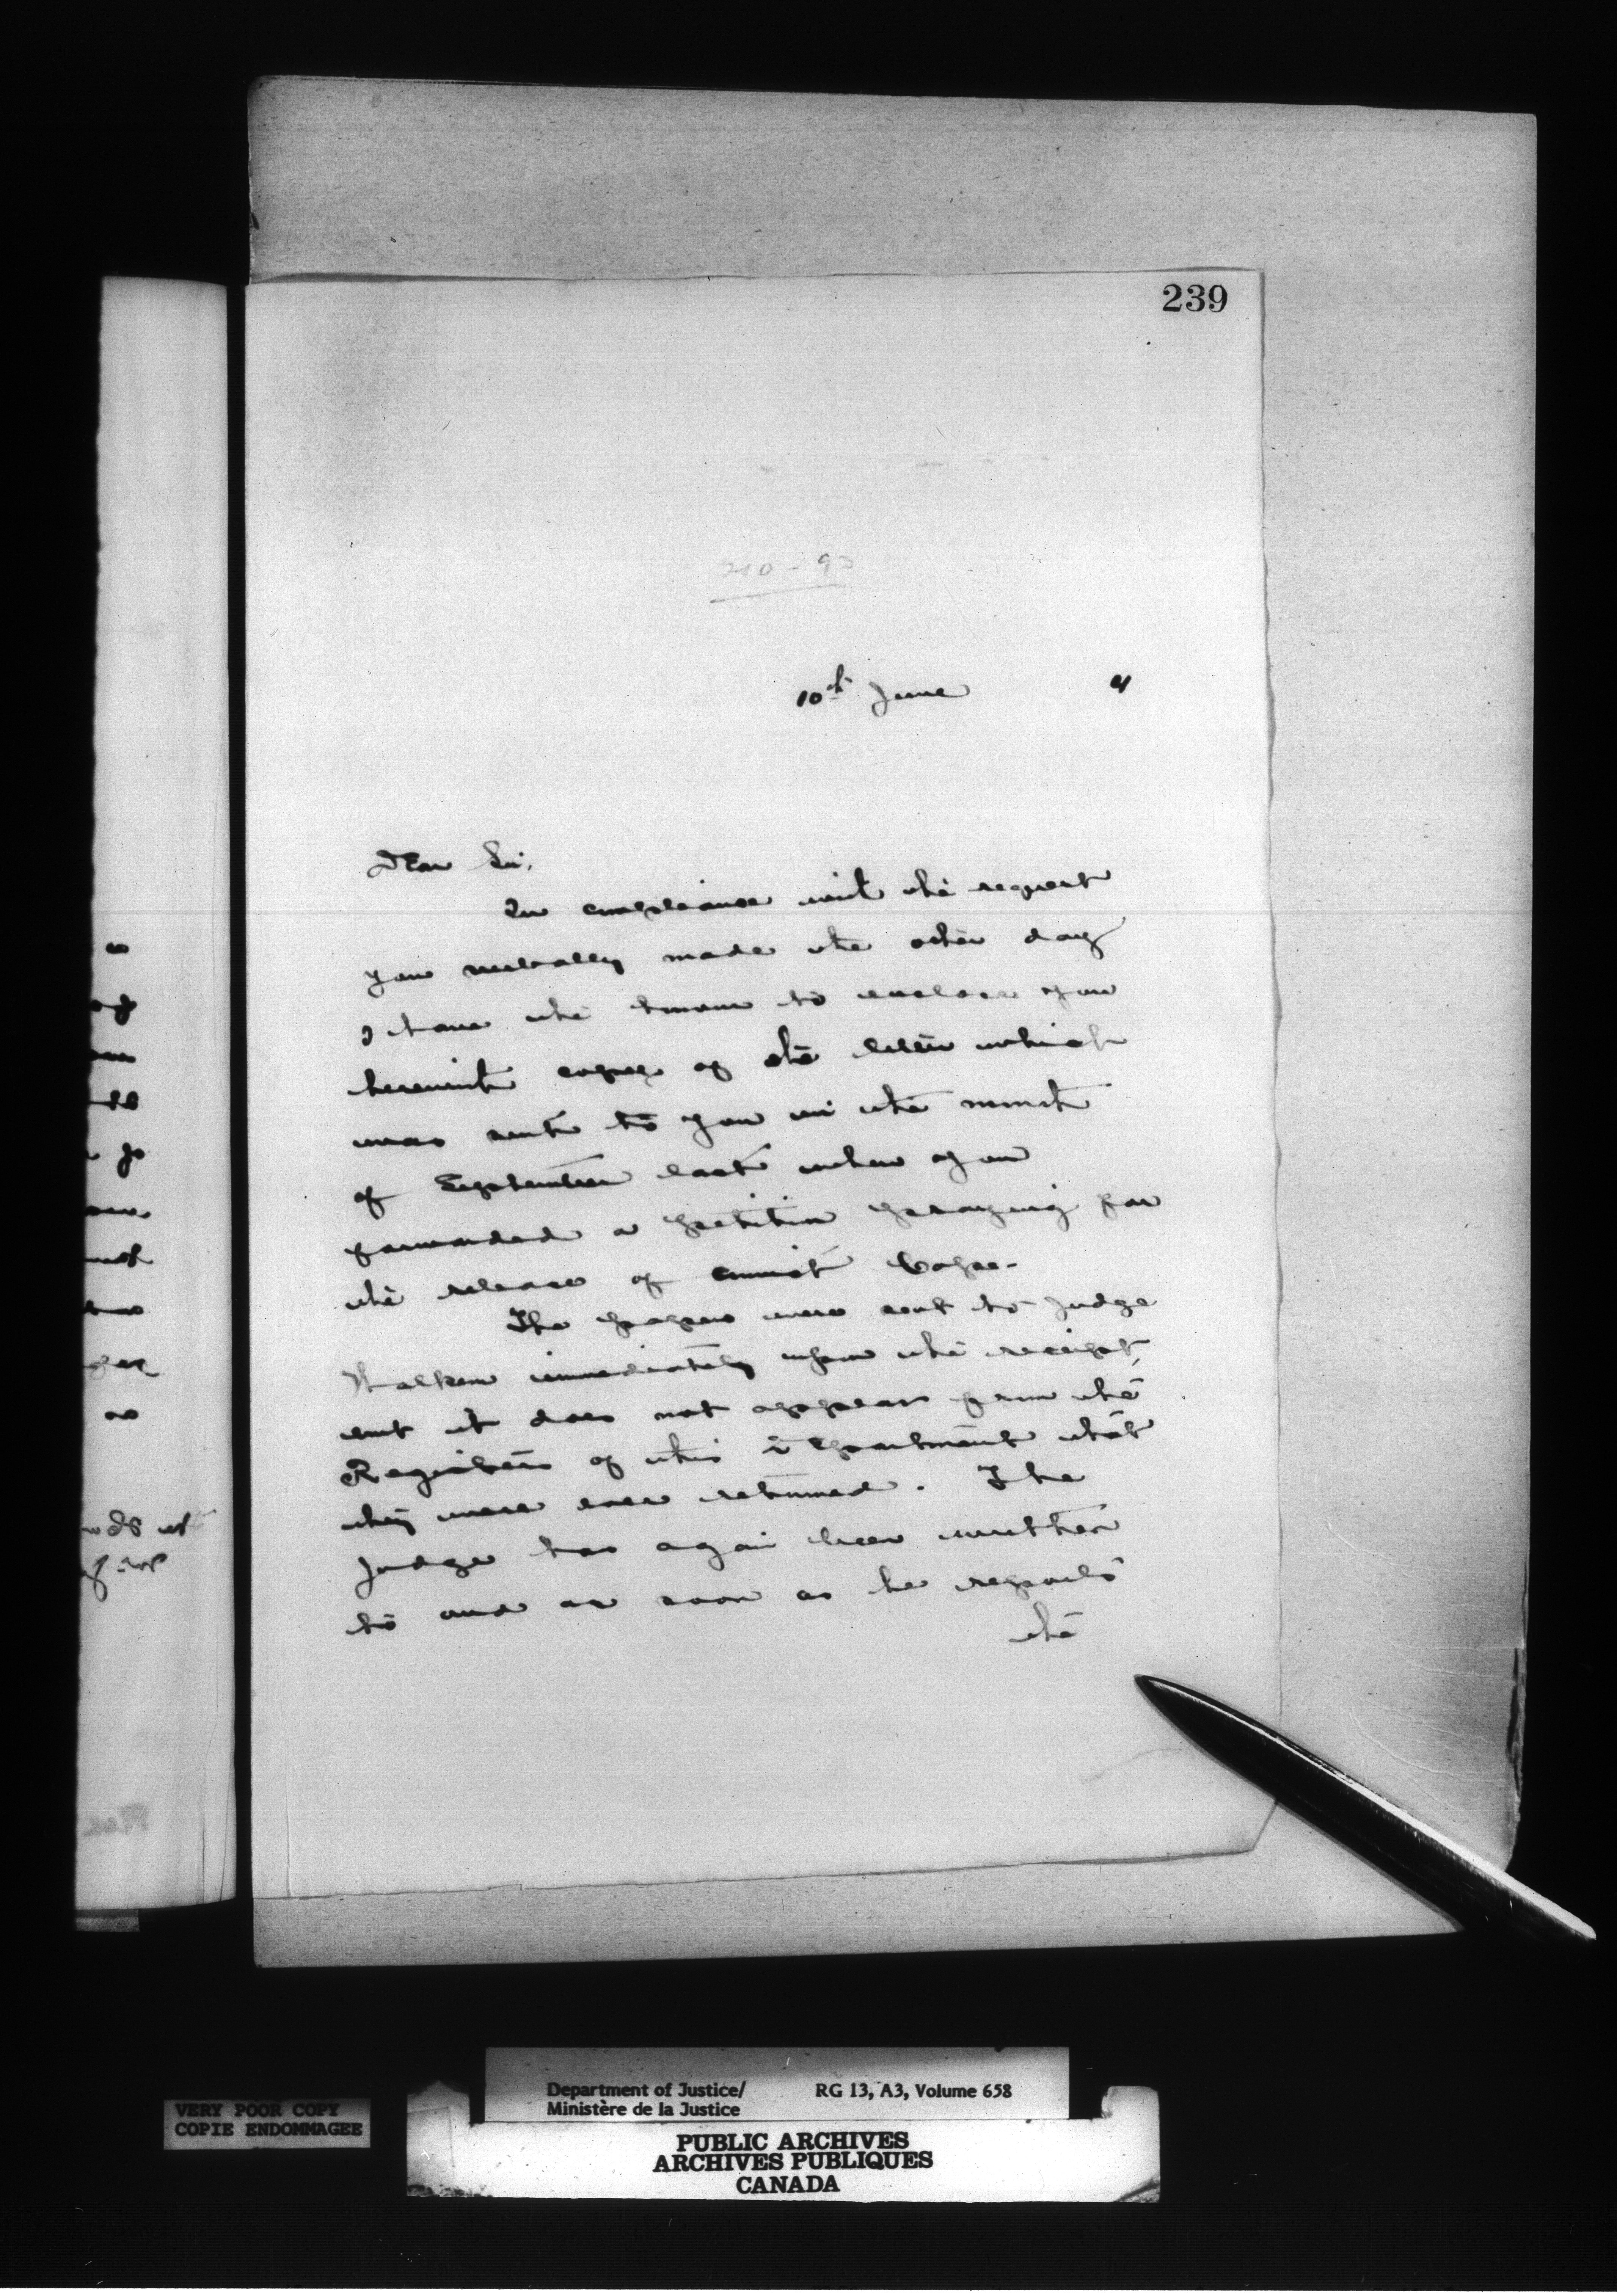 239
10th June 91
Dear Sir,
In compliance with the request
you verbally made the other day
I have the honour to enclose you
herewith copy of the letter which
was sent to you in the month
of September last when you
forwarded a petition praying for
the release of convict Cope.
The papers were sent to Judge
Walkem immediately upon the receipt,
but it does not appear from the
Registers of this Department that
they were ever returned. The
Judge has again been written
to and as soon as he reports
the
VERY POOR COPY
COPIE ENDOMMAGEE
Department of Justice/ RG 13, A3, Volume 658
Ministère de la Justice
PUBLIC ARCHIVES
ARCHIVES PUBLIQUES
CANADA